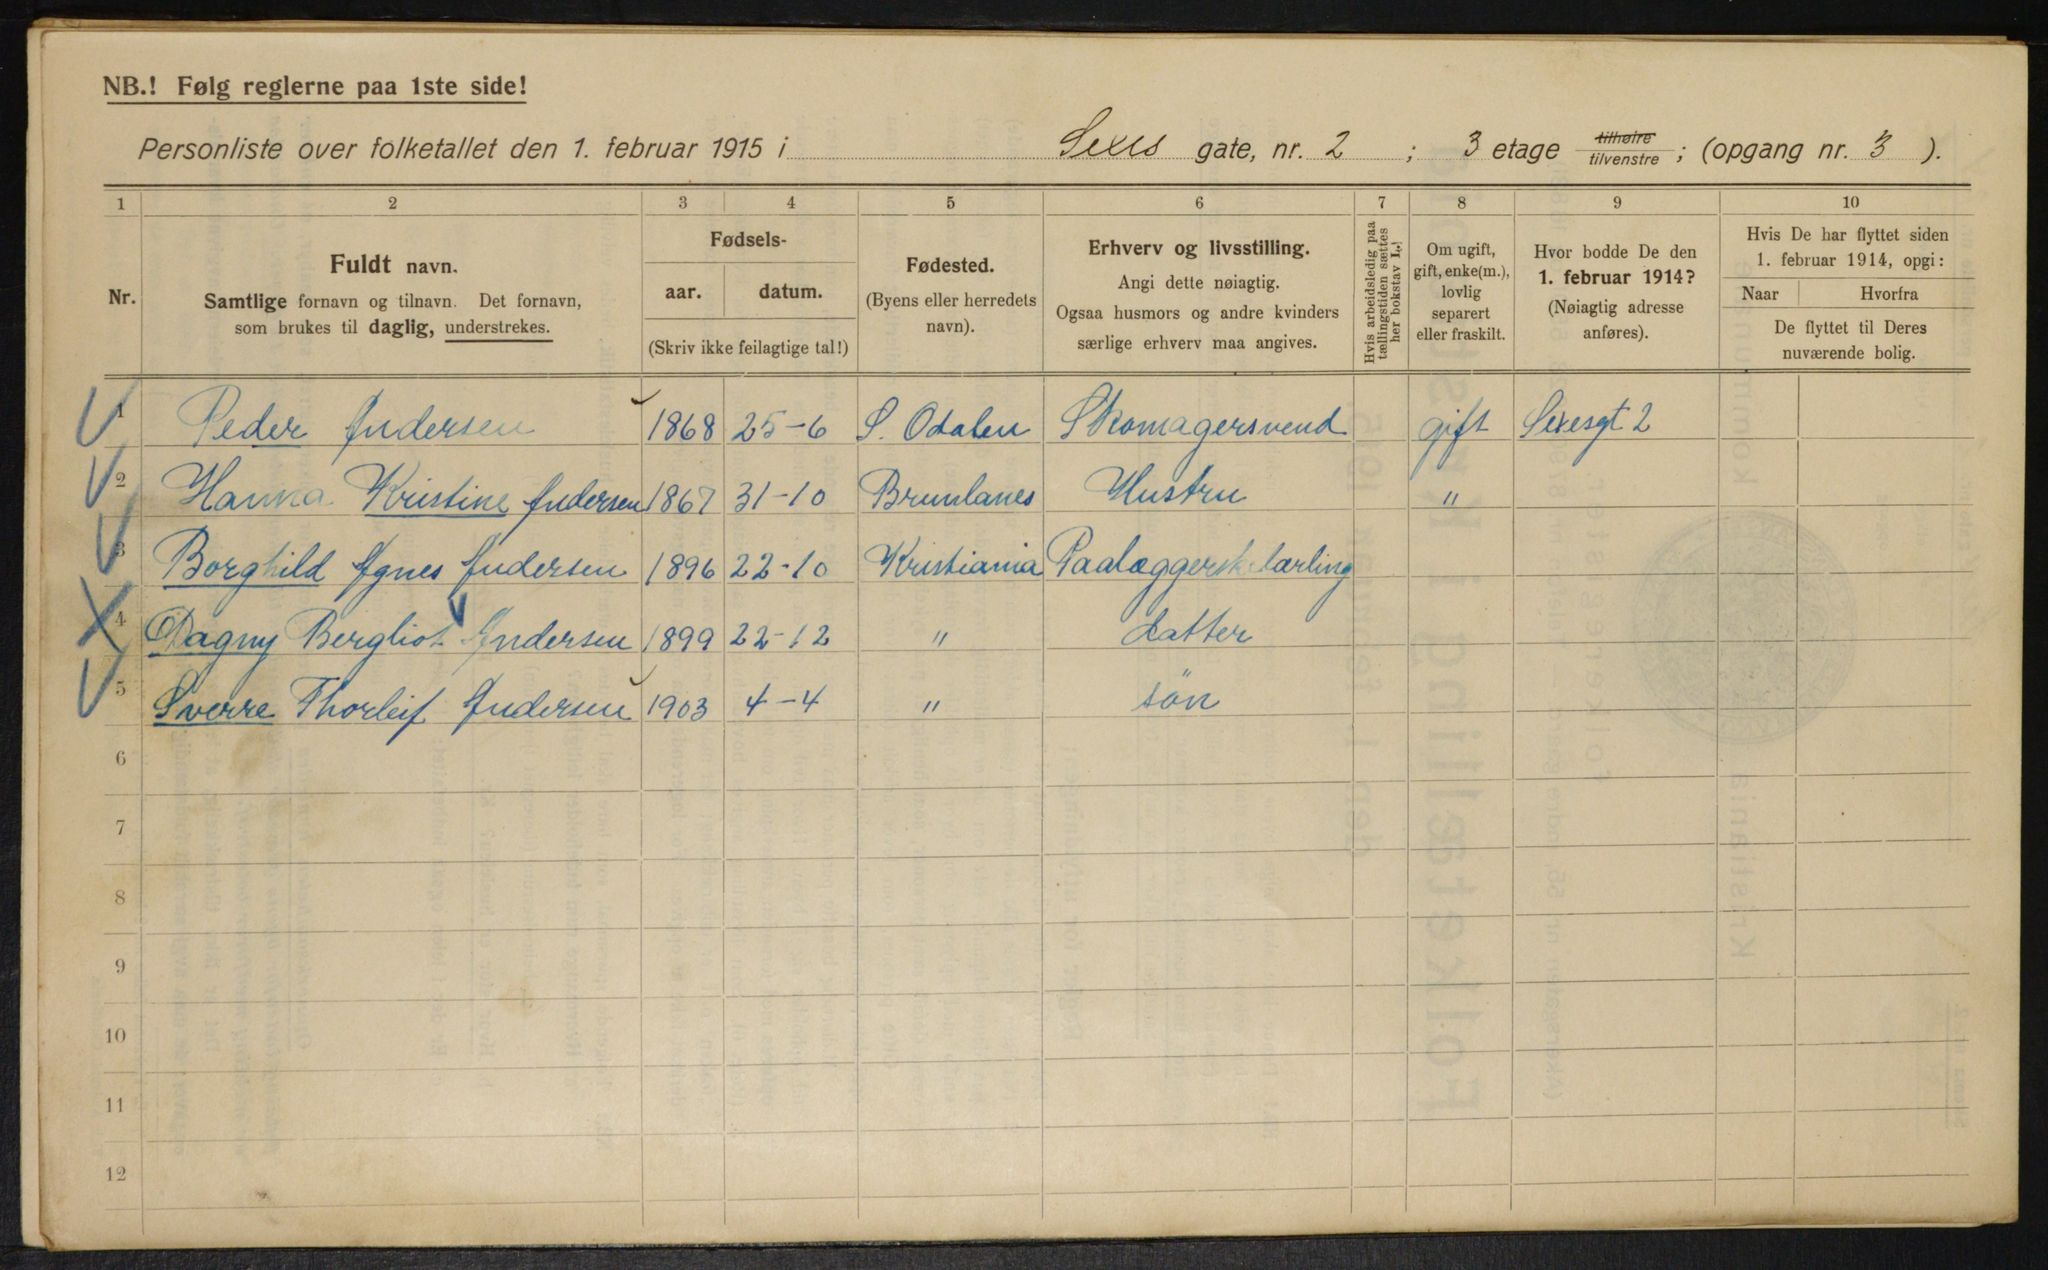 NB.! Følg reglerne paa 1ste side!
Personliste over folketallet den 1. februar 1915 i Sexes gate, nr. 2 ; 3 etage tilhøire tilvenstre ; (opgang nr. 3 ).
1 2 3 4 5 6 7 8 9 10
Nr.
Fuldt navn.
Samtlige fornavn og tilnavn. Det fornavn,
som brukes til daglig, understrekes.
Fødsels-
aar. datum.
(Skriv ikke feilagtige tal!)
Fødested.
(Byens eller herredets
navn).
Erhverv og livsstilling.
Angi dette nøiagtig.
Ogsaa husmors og andre kvinders
særlige erhverv maa angives.
Hvis arbeidsledig paa
tællingstiden sættes
her bokstav L.!
Om ugift,
gift, enke(m.),
lovlig
separert
eller fraskilt.
Hvor bodde De den
1. februar 1914?
(Nøiagtig adresse
anføres).
Hvis De har flyttet siden
1. februar 1914, opgi:
Naar Hvorfra
De flyttet til Deres
nuværende bolig.
1 Peder Andersen 1868 25-6 S. Odalen Skomagersvend gift Sexesgt 2
2 Hanna Kristine Andersen 1867 31-10 Brunlanes Hustru "
3 Borghild Agnes Andersen 1896 22-10 Kristiania Paalæggersk.lærling
4 Dagny Bergliot Andersen 1899 22-12 " datter
5 Sverre Thorleif Andersen 1903 4-4 " søn
6
7
8
9
10
11
12